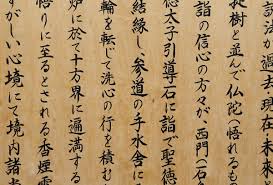 法が過去現在
提樹と並んで仏陀(悟れるも
詣の信心の方々が、西門(石
徳太子引導石に詣で聖徳
結縁し、参道の手水舎に
輪を転じて洗心の行を積む
炉に於て十方界に遍満する
悟りに至るとされる香煙
すがしい心境にて境内諸